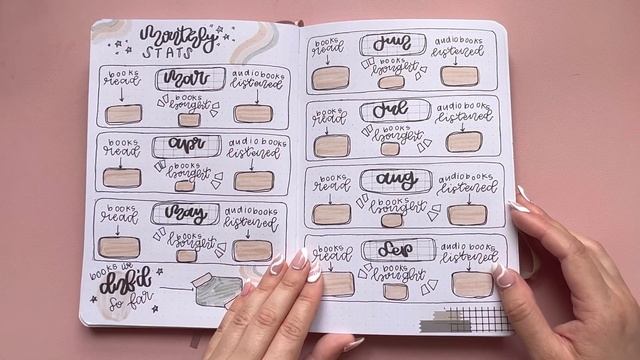 monthly
STATS
books
read
mar
audiobooks
listened
books
bought
books
read
apr
audiobooks
listened
books
bought
books
read
may
audiobooks
listened
books
bought
books i've
dnf'd
so far
books
read
jun
audiobooks
listened
books
bought
books
read
jul
audiobooks
listened
books
bought
books
read
aug
audiobooks
listened
books
bought
books
read
sep
audiobooks
listened
books
bought